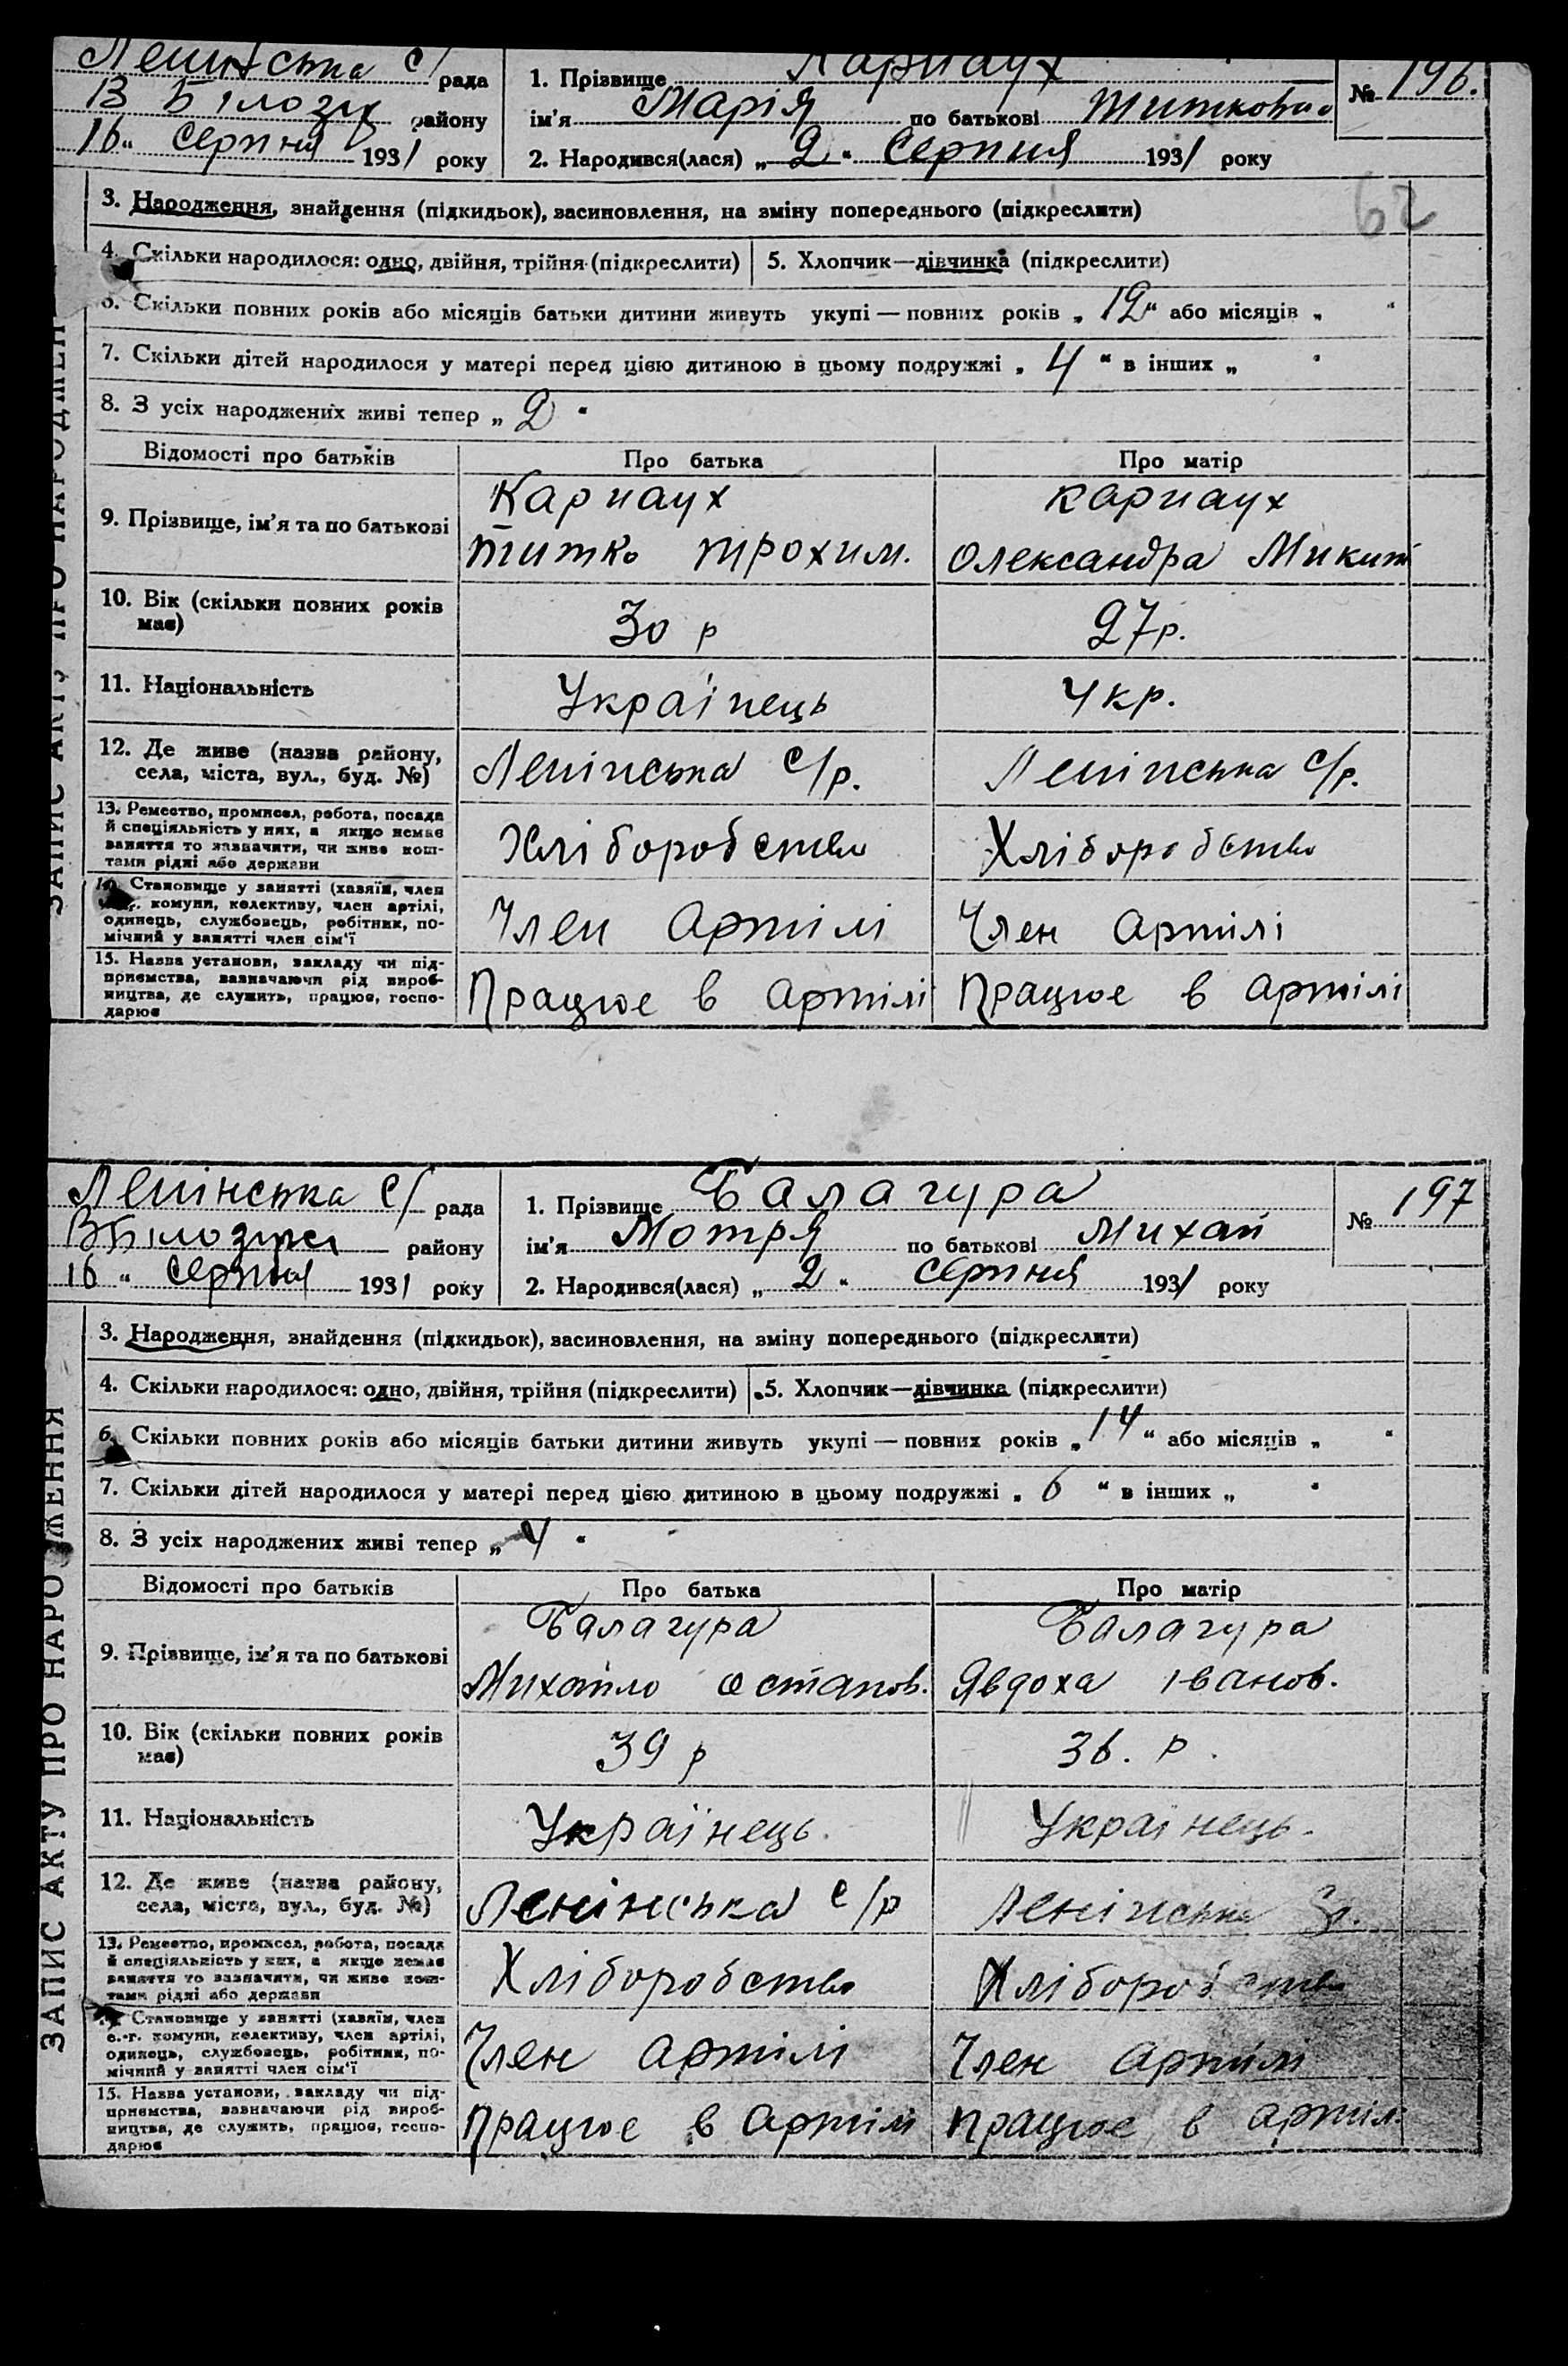 Ленінська с/ рада
В Білозір району
16 " Серпня 1931 року
1. Прізвище Карнаух
ім'я Марія по батькові Титковна
2. Народився(лася) „ 2 " Серпня 1931 року
№ 196.
62
3. Народження, знайдення (підкидьок), васиновлення, на зміну попереднього (підкреслити)
4. Скільки народилося: одно, двійня, трійня (підкреслити) 5. Хлопчик—дівчинка (підкреслити)
6. Скільки повних років або місяців батьки дитини живуть укупі — повних років „ 12 " або місяців „ "
7. Скільки дітей народилося у матері перед цією дитиною в цьому подружжі „ 4 " в інших „ "
8. З усіх народжених живі тепер „ 2 "
Відомості про батьків Про батька Про матір
9. Прізвище, ім'я та по батькові
Карнаух
Титко Трохим.
Карнаух
Олександра Микит
10. Вік (скільки повних років
має)
30 р
27 р.
11. Національність Українець Укр.
12. Де живе (назва району,
села, міста, вул., буд. №)
Ленінська с/р.
Ленінська с/р.
13. Ремество, промисел, робота, посада
й спеціяльність у них, а якщо немає
заняття то зазначити, чи живе кош-
тами рідні або держави
Хліборобство
Хліборобство
14. Становище у занятті (хазяїн, член
с.-г. комуни, колективу, член артілі,
одинець, службовець, робітник, по-
мічний у занятті член сім'ї
Член Артілі
Член Артілі
15. Назва установи, закладу чи під-
приємства, зазначаючи рід вироб-
ництва, де служить, працює, госпо-
дарює
Працює в Артілі
Працює в Артілі
Ленінська с/ рада
В Білозіркі району
16 " Серпня 1931 року
1. Прізвище Балагура
ім'я Мотря по батькові Михай
2. Народився(лася) „ 2 " серпня 1931 року
№ 197
3. Народження, знайдення (підкидьок), васиновлення, на зміну попереднього (підкреслити)
4. Скільки народилося: одно, двійня, трійня (підкреслити) 5. Хлопчик—дівчинка (підкреслити)
6. Скільки повних років або місяців батьки дитини живуть укупі — повних років „ 14 " або місяців „ "
7. Скільки дітей народилося у матері перед цією дитиною в цьому подружжі „ 6 " в інших „ "
8. З усіх народжених живі тепер „ 4 "
Відомості про батьків Про батька Про матір
9. Прізвище, ім'я та по батькові
Балагура
Михайло Остапов.
Балагура
Явдоха Іванов.
10. Вік (скільки повних років
має)
39 р
36. р.
11. Національність Українець. Українець.
12. Де живе (назва району,
села, міста, вул., буд. №)
Ленінська с/р
Ленінська с/р.
13. Ремество, промисел, робота, посада
й спеціяльність у них, а якщо немає
заняття то зазначити, чи живе кош-
тами рідні або держави
Хліборобство
Хліборобство
14. Становище у занятті (хазяїн, член
с.-г. комуни, колективу, член артілі,
одинець, службовець, робітник, по-
мічний у занятті член сім'ї
Член Артілі
Член Артілі
15. Назва установи, закладу чи під-
приємства, зазначаючи рід вироб-
ництва, де служить, працює, госпо-
дарює
Працює в Артілі
Працює в Артілі
ЗАПИС АКТУ ПРО НАРОДЖЕННЯ
ЗАПИС АКТУ ПРО НАРОДЖЕННЯ